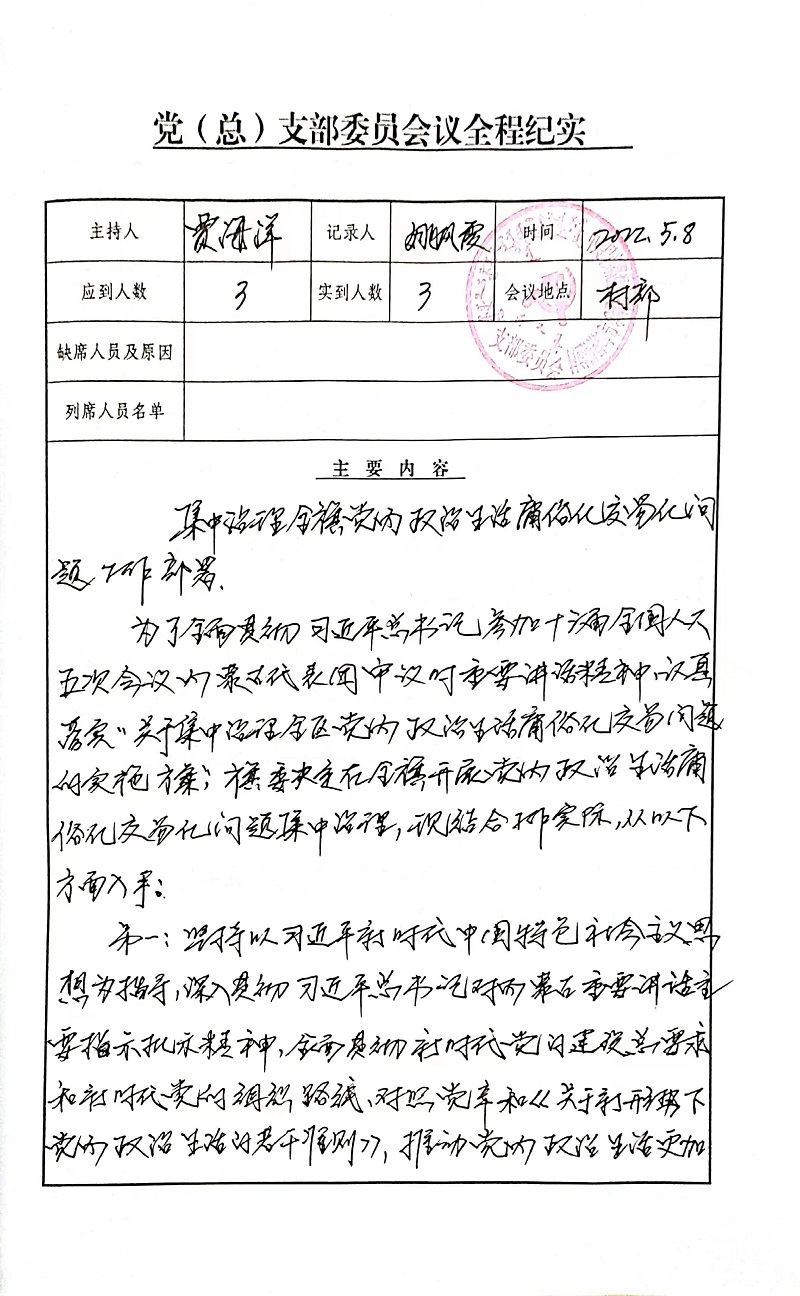 党（总）支部委员会议全程纪实
主持人 贾海洋 记录人 时间 2022.5.8
应到人数 3 实到人数 3 会议地点 村部
缺席人员及原因
列席人员名单
支部委员会
主要内容
集中治理全旗党内政治生活庸俗化交易化问
题工作部署.
为了全面贯彻习近平总书记参加十三届全国人大
五次会议内蒙古代表团审议时重要讲话精神，认真
落实“关于集中治理全区党内政治生活庸俗化交易问题
的实施方案；旗委决定在全旗开展党内政治生活庸
俗化交易化问题集中治理，现结合 实际，从以下
方面入手：
第一：坚持以习近平新时代中国特色社会主义思
想为指导，深入贯彻习近平总书记对内蒙古重要讲话重
要指示批示精神，全面贯彻新时代党的建设总要求
和新时代党的组织路线、对照党章和《关于新形势下
党内政治生活的若干准则》，推动党内政治生活更加